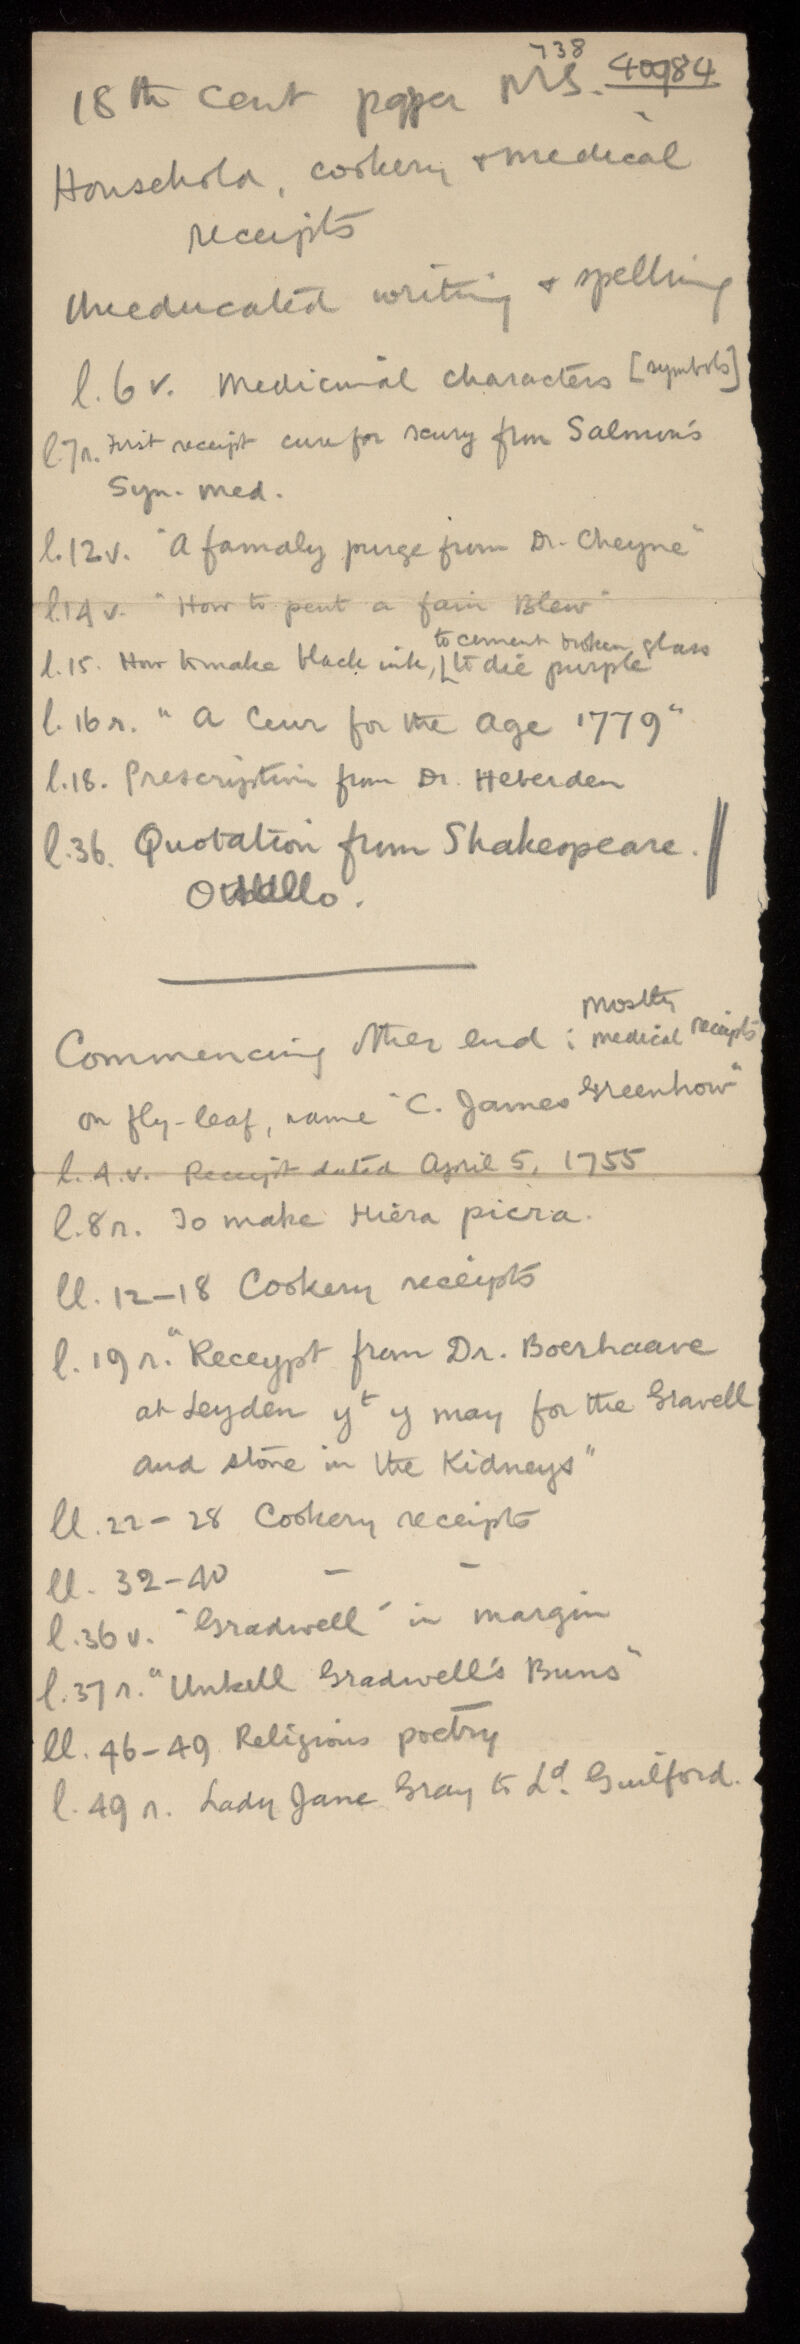 738
18th Cent paper MS. 40984
Household, cookery & medical
receipts
Uneducated writing & spelling
l. 6 v. Medicinal characters [symbols]
l.7r. First receipt cure for scury from Salmon's
Syn. med.
l.12v. "A famaly purge from Dr. Cheyne"
l.14 v. "How to pent a fair Blew"
to cement broken glass
l.15. How to make black ink, to die purple
l. 16 r. "A Ceur for the Age 1779"
l.18. Prescription from Dr. Heberden
l.36. Quotation from Shakespeare.
Othello.
Commencing other end : mostly medical receipts
on fly-leaf, name "C. James Greenhow"
l. 4.v. Receipt dated April 5, 1755
l.8r. To make Hiera picra.
ll. 12-18 Cookery receipts
l. 19 r. "Receypt from Dr. Boerhaave
at Leyden yt y may for the Gravell
and stone in the Kidneys"
ll. 22-28 Cookery receipts
ll. 32-40 - -
l.36 v. "Gradwell" in margin
l.37 r. "Unkell Gradwell's Buns"
ll. 46-49 Religious poetry
l. 49 r. Lady Jane Gray to Ld. Guilford.